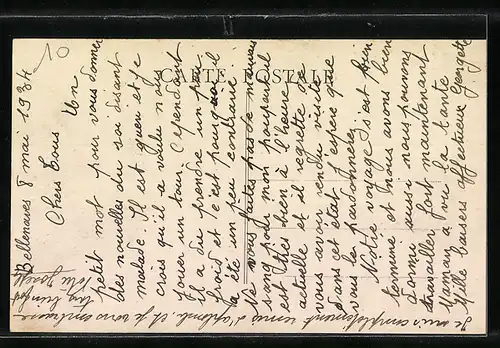 10
CARTE POSTALE
Bellenaves 8 mai 1934
Chers tous Un
petit mot pour vous donner
des nouvelles du soi disant
malade. Il est guéri et je
crois qu'il a voulu nous
jouer un tour. Cependant
il a du prendre un peu
froid et c'est pourquoi il
a été un peu contrarié.
Ne vous faites pas de mauvais
sang pour mon poupour il
est très bien à l'heure
actuelle et il regrette de
vous avoir rendu visite
dans cet état. J'espère que
vous le pardonnerez
Notre voyage s'est bien
terminé et nous avons bien
dormi aussi nous pouvons
travailler fort maintenant
Maman a vu la tante
Mille baisers affectueux Georgette
Je suis complètement remis d'aplomb, et je vous embrasse
très fort
Votre Joseph